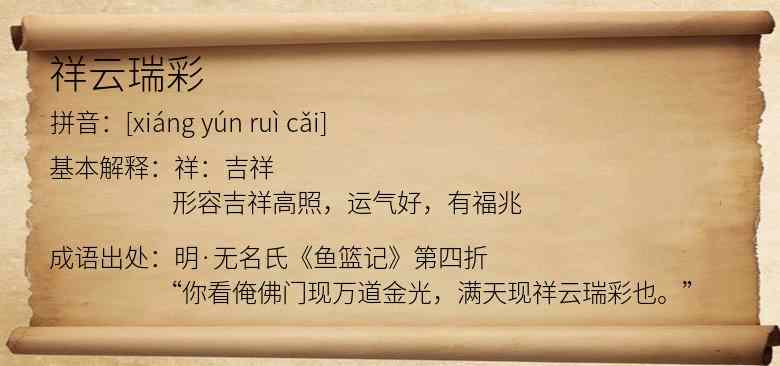 祥云瑞彩
拼音：[xiáng yún ruì cǎi]
基本解释：祥：吉祥
形容吉祥高照，运气好，有福兆
成语出处：明·无名氏《鱼篮记》第四折
“你看俺佛门现万道金光，满天现祥云瑞彩也。”